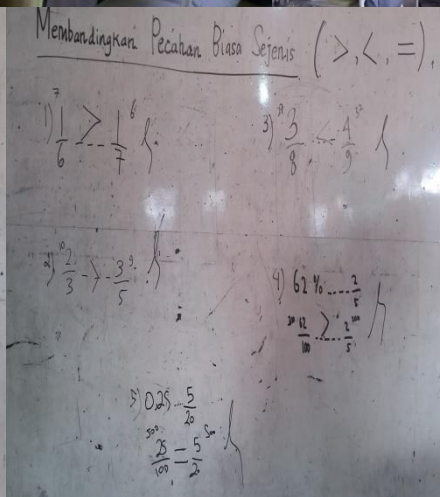 Membandingkan Pecahan Biasa Sejenis (>, <, =).
1) 7 1/6 ----> 1/7 6
3) 3/8 < 4/9
2) 10 2/3 -->-- 3/5 9
4) 62 % ..... 2/5
62/100 ..>.. 2/5 200
5) 0,25 ... 5/20
500 25/100 = 5/20 500